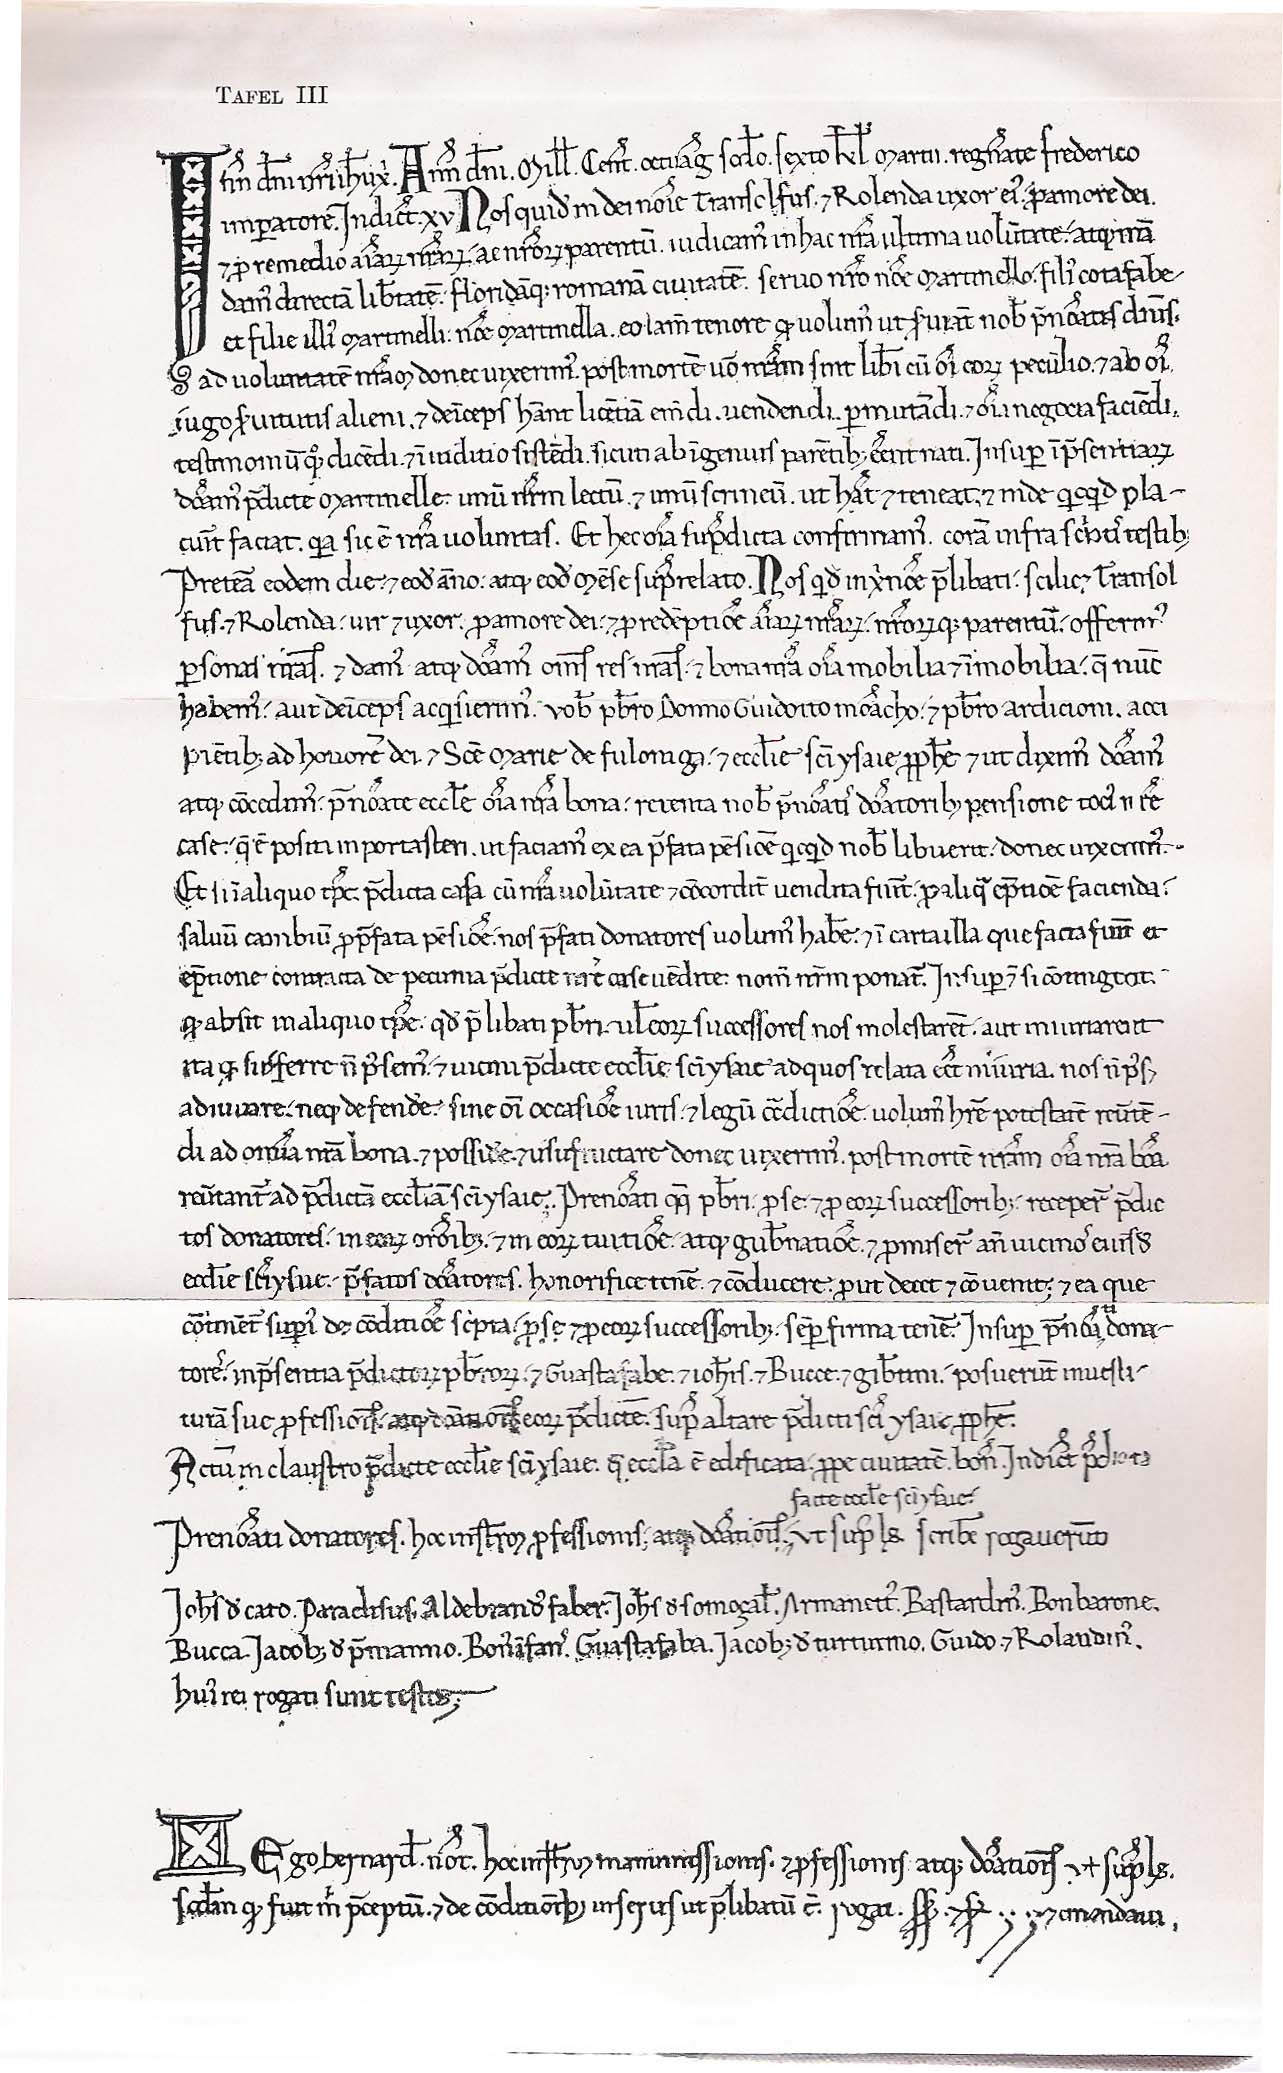 TAFEL III
In nōīe dn̄i nr̄i ihu xp̄i. Ann dn̄i. Mill. Cent. octuag. scd̄o. sexto kl̄ Martii. regnāte frederico
imp̄atore. Indict. xv Nos quidē in dei nōīe Transolfus. ⁊ Rolenda uxor ei᾽. p̄ amore dei.
⁊ p̄ remedio aīarꝝ nr̄arꝝ. ac nr̄orꝝ parentū. iudicam᾽ in hac nr̄a ultima uolūtate. atqꝫ nr̄a
dam᾽ directā lib̄tatē. floridāqꝫ romanā ciuitatē. seruo nr̄o nōīe Martinello. fili᾽ cotafabe-
et filie illi᾽ Martinelli. nōīe Martinella. eo iam tenore qꝫ uolum᾽ ut s̄uiāt nob̄ p̄noīatis dn̄is.
ad uoluntatē nr̄am donec uixerim᾽. post mortē uō nr̄am sint lib̄i cū oī eorꝝ peculio. ⁊ ab oī
iugo s̄uitutis alieni. ⁊ deīceps hān̄t licētiā em̄di. uendendi. ꝑmutādi. ⁊ oīa negocia faciēdi.
testimoniū qꝫ dicēdi. ⁊ ī iuditio sistēdi. sicuti ab īgenuis parētibꝫ eēnt nati. Insuꝑ ī p̄sentiarꝝ
dōam᾽ p̄dicte Martinelle. unū nr̄m lectū. ⁊ unū scrineū. ut hāt ⁊ teneat. ⁊ inde qicqd pla-
cuīt faciat. qīa sic ē nr̄a uoluntas. Et hec oīa sup̄dicta confirmam᾽. corā infra sc̄pti᾽ testibꝫ
Pretea eodem die. ⁊ eod̄ anno. atqꝫ eod̄ mēse sup̄relato. Nos qid̄ in xp̄i nōīe p̄libati. scilicꝫ Transol
fus. ⁊ Rolenda. uir ⁊ uxor. ꝓ amore dei. ⁊ ꝓ redēptiōe aīarꝝ nr̄arꝝ. nr̄orꝝqꝫ parentū. offerim᾽
ꝑsonas nr̄as. ⁊ dam᾽ atqꝫ dōam᾽ oms̄ res nr̄as. ⁊ bona nr̄a oīa mobilia ⁊ īmobilia. q̄ nūc
habem᾽. aut deīceps acq̄sierim᾽. vob̄ pb̄ro Donno Guidotto mōacho. ⁊ pb̄ro ardicioni. acci
piētibꝫ ad honorē dei. ⁊ Sc̄e Marie de fulonigā. ⁊ eccl̄ie sc̄i ysaie ꝓph̄e ⁊ ut dixim᾽ dōam᾽
atqꝫ cōcedim᾽. p̄noīate eccl̄e oīa nr̄a bona. retenta nob̄ p̄noīati᾽ dōatoribꝫ pensione toci᾽ nr̄e
case. q̄ ē posita in porta steri. ut faciam᾽ ex ea p̄fata pēsiōe qicqd nob̄ libuerit. donec uixerim᾽.
Et si ī aliquo tp̄e. p̄dicta casa cū nr̄a uolūtate ⁊ cōcordit᾽ uendita fuīt. ꝓ aliq̄ ep̄tiōe facienda.
saluū cambiū ꝓ p̄fata pēsiōe. nos p̄fati donatores uolum᾽ habē. ⁊ ī carta illa que facta fuīt et
ep̄tione contracta de pecunia p̄dicte nr̄e case uēdite. nom̄ nr̄m ponat᾽. Insuꝑ ⁊ si cōtingeret.
qꝫ absit in aliquo tp̄e. qd̄ p̄libati pb̄ri. ul̄ eorꝝ successores nos molestarēt. aut iniuriarent
ita qꝫ sufferre n̄ possem᾽. ⁊ uicini p̄dicte eccl̄ie sc̄i ysaie ad quos relata eēt iniuria. nos n̄ possꝫ
adiuuare. neqꝫ defendē. sine oī occasiōe iuris. ⁊ legū cōdictiōe. uolum᾽ hr̄e potestatē reūtē-
di ad omnia nr̄a bona. ⁊ possidē. ⁊ usufructare donec uixerim᾽. post mortē nr̄am oīa nr̄a bōa
reūtant᾽ ad p̄dictā eccl̄iā sc̄i ysaie. Prenoīati qq̄ pb̄ri. ꝓ se. ⁊ ꝓ eorꝝ successoribꝫ. recepert᾽ p̄dic
tos donatores. in eorꝝ orōibꝫ. ⁊ in eorꝝ tuitiōe. atqꝫ gub̄natiōe. ⁊ ꝓmiser᾽ an̄ uicino᾽ eiusd̄
eccl̄ie sc̄i ysaie. p̄fatos dōatores. honorifice tenē. ⁊ cōducere. ꝓut decet ⁊ cōuenit. ⁊ ea que
cōtinēt᾽ suꝑi᾽ de cōditiōe sc̄pta. ꝓ se. ⁊ ꝓ eorꝝ successoribꝫ. sēꝑ firma tenē. Insuꝑ p̄noīati dona-
tore᾽. in p̄sentia p̄dictorꝝ pb̄rorꝝ. ⁊ Guastafabe. ⁊ ioh̄is. ⁊ Bucce. ⁊ gib̄tini. posuerūt inuesti-
turā sue ꝓfessionis. atqꝫ dōationis eorꝝ p̄dictē. sup̄ altare p̄dicti sc̄i ysaie ꝓph̄e.
Actū in claustro p̄dicte eccl̄ie sc̄i ysaie. q̄ eccl̄a ē edificata. ꝓpe ciuitatē. bon̄. Indict p̄dicta
facte eccl̄e sc̄i ysaie.
Prenoīati donatores. hoc instr̄m ꝓfessionis. atqꝫ dōationis. ut sup̄ l̄g. scribē rogauerūt
Joh̄s d̄ cato. Paradisus. Aldebrand᾽ faber. Joh̄s d̄ somogal̄. Armanett᾽. Bastardin᾽. Bonbarone.
Bucca. Jacobꝫ d̄ p̄manno. Bonīfan᾽. Guastafaba. Jacobꝫ d̄ turturino. Guido. ⁊ Rolandin᾽.
hui᾽ rei rogati sunt testes;
Ego bernard᾽. nōt. hoc instr̄m manumissionis. ⁊ ꝓfessionis atqꝫ dōationis ut sup̄ l̄g.
scd̄m qꝫ fuit m᾽ p̄ceptū. ⁊ de cōditionibꝫ insertis ut p̄libatū ē. rogat. ss. ⁊ emendaui.